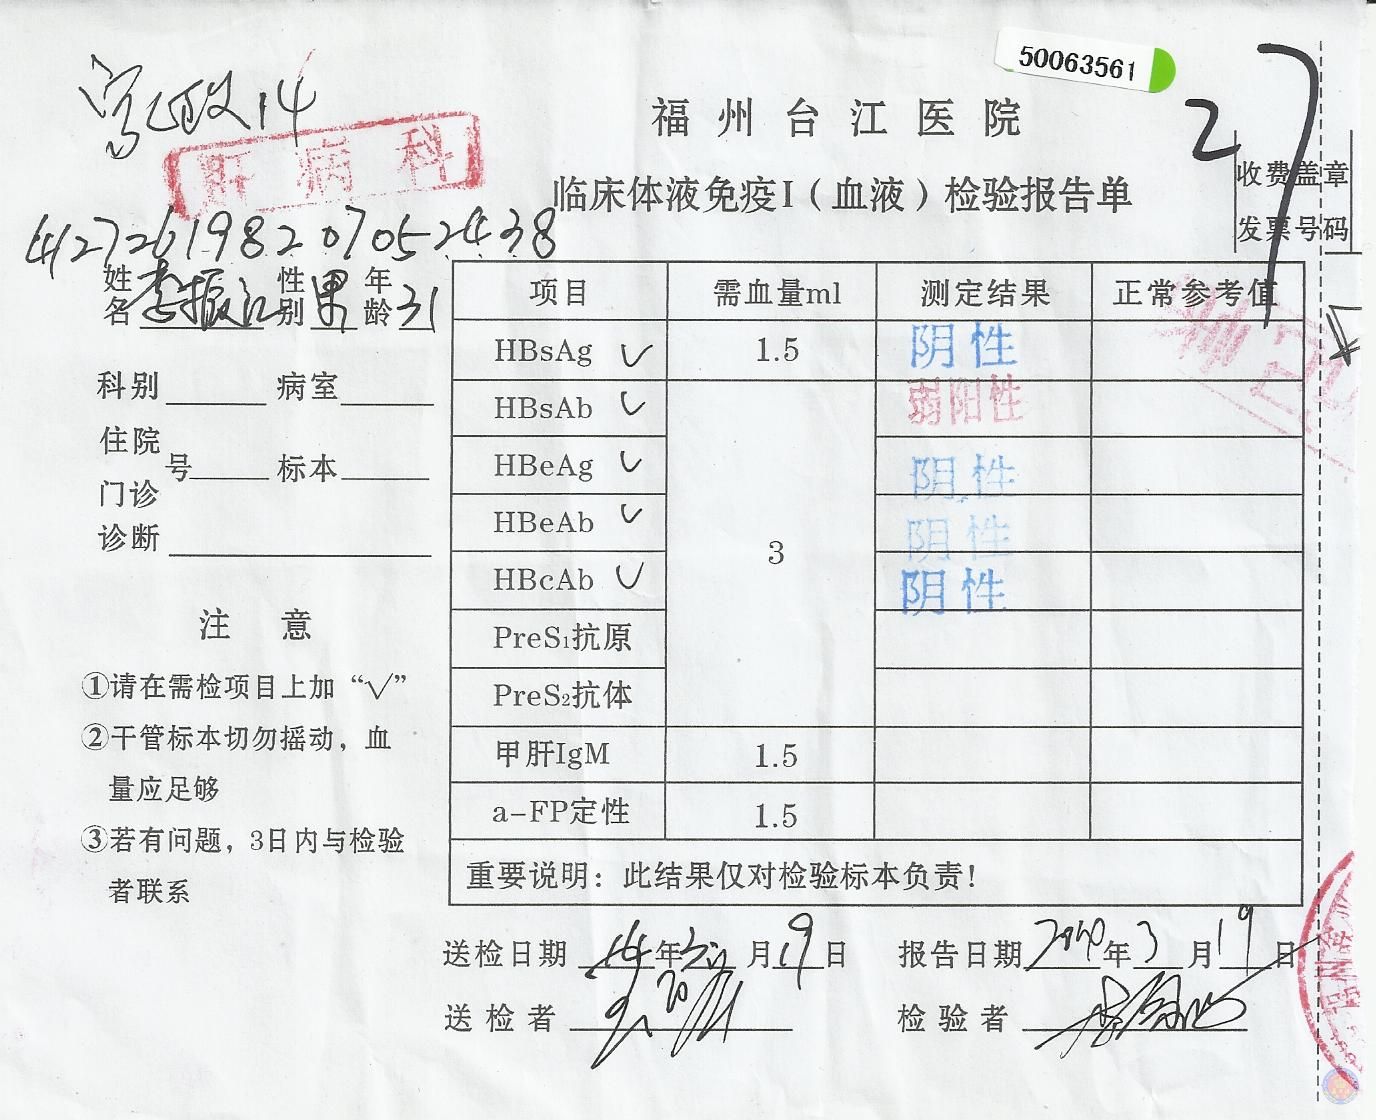 50063561
27
14
福州台江医院
肝病科
临床体液免疫I(血液)检验报告单
收费盖章
发票号码
412726198207052438
姓名 李振江 性别 男 年龄 31
科别 病室
住院
门诊
号 标本
诊断
项目 需血量ml 测定结果 正常参考值
HBsAg ✓ 1.5 阴性
HBsAb ✓ 弱阳性
HBeAg ✓ 阴性
HBeAb ✓ 3 阴性
HBcAb ✓ 阴性
PreS₁抗原
PreS₂抗体
甲肝IgM 1.5
a-FP定性 1.5
重要说明：此结果仅对检验标本负责!
注意
①请在需检项目上加“√”
②干管标本切勿摇动，血
量应足够
③若有问题，3日内与检验
者联系
送检日期 14年 月19日 报告日期 年3月19日
送检者 检验者